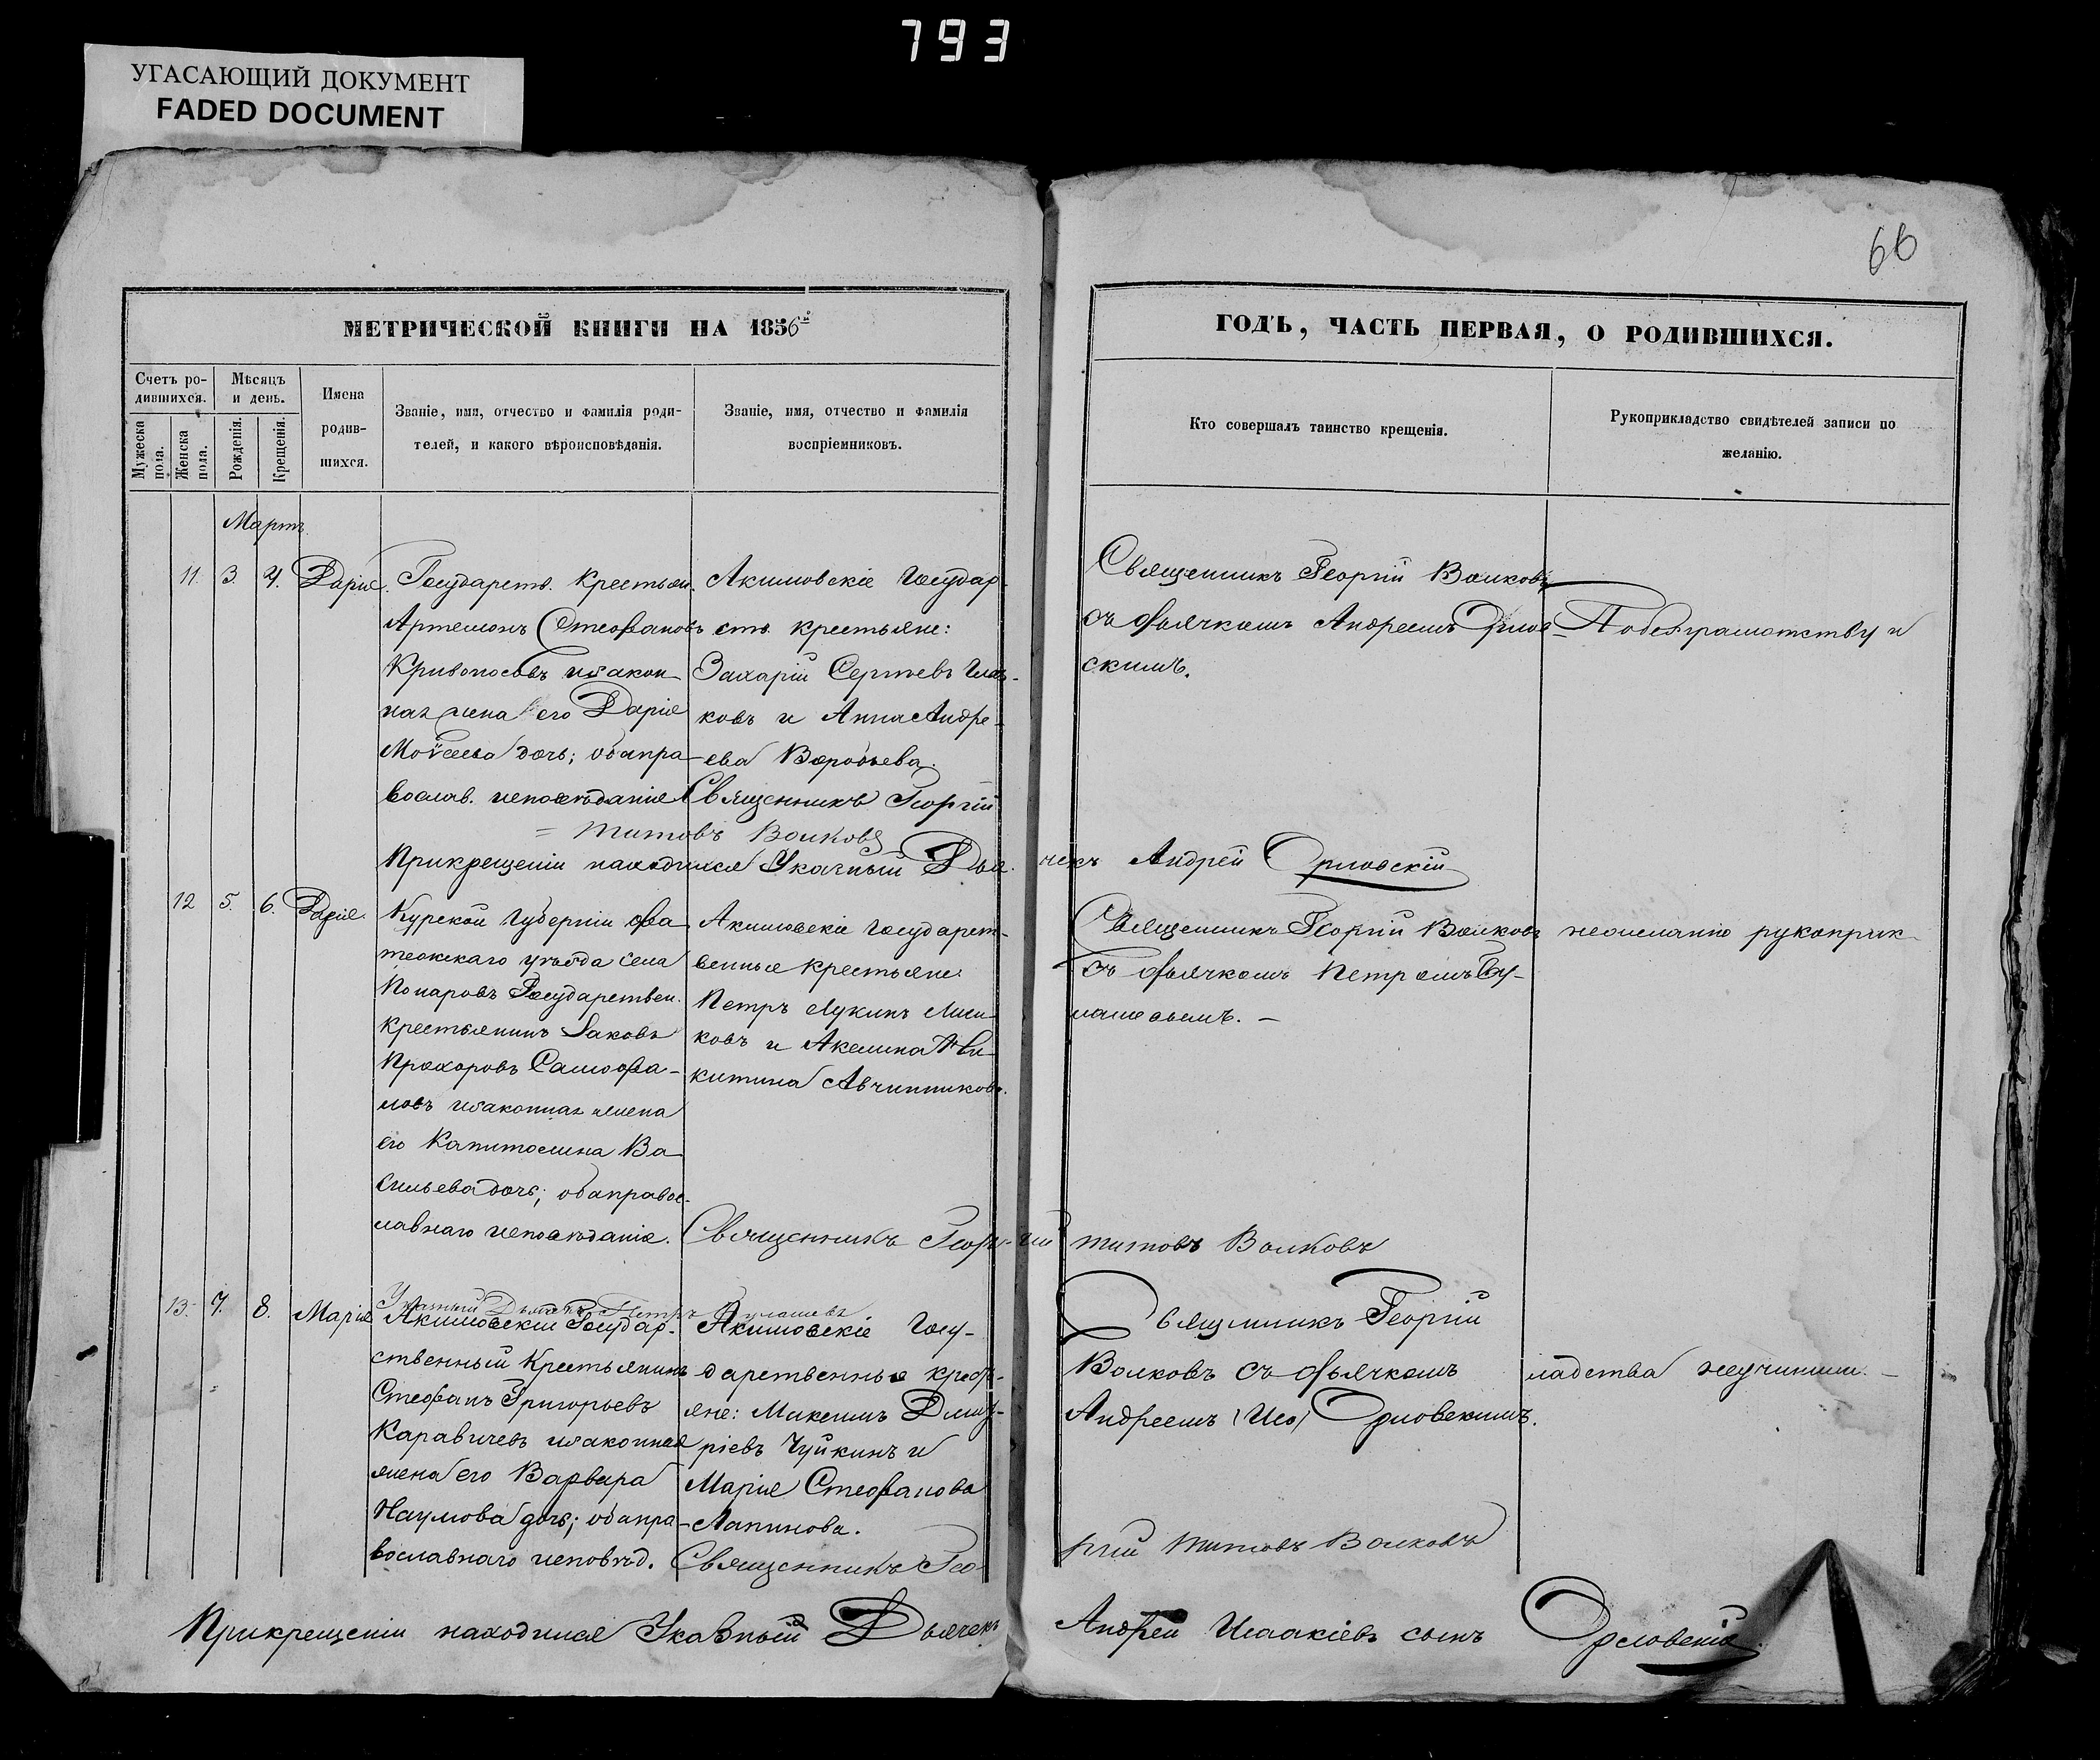 793
УГАСАЮЩИЙ ДОКУМЕНТ
FADED DOCUMENT
66
МЕТРИЧЕСКОЙ КНИГИ НА 1856й
ГОДЪ, ЧАСТЬ ПЕРВАЯ, О РОДИВШИХСЯ.
Счетъ ро-
дившихся.
Мужеска пола.
Женска пола.
Мѣсяцъ
и день.
Рожденія.
Крещенія.
Имена
родив-
шихся.
Званіе, имя, отчество и фамилія роди-
телей, и какого вѣроисповѣданія.
Званіе, имя, отчество и фамилія
воспріемниковъ.
Кто совершалъ таинство крещенія.
Рукоприкладство свидѣтелей записи по
желанію.
Мартъ
11. 3. 4. Дарія.
Государств. Крестьян.
Артемонъ Стефановъ
Кривоносовъ изакон
ная жена его Дарія
Моѵсеева дочь; оба пра
вослав. исповѣданія
Акимовскіе Государ-
ств. крестьяне:
Захарій Сергѣевъ
ковъ и Анна Андре-
ева Воробьева.
Священникъ Георгій
Титовъ Волковъ
Священникъ Георгій Волковъ
съ дьячкомъ Андреемъ Орлов-
скимъ.
По безграмотству и
Прикрещеніи находился Указный Дьячекъ Андрей Орловскій
12 5. 6. Дарія.
Курской Губерніи Фа
тежскаго уѣзда села
Понаровъ Государствен.
крестьянинъ Іаковъ
Прохоровъ Самофа-
ловъ изаконная жена
его Капитолина Ва
сильева дочь; оба правос-
лавнаго исповѣданія.
Акимовскіе Государст-
венные крестьяне:
Петръ Лукинъ
ковъ и Акелина Ни
китина Авчинников.
Священникъ Георгій Волковъ
съ дьячкомъ Петромъ Бу-
лашевымъ. —
нежеланію рукоприк
Священникъ Георгій Титовъ Волковъ
Указный Дьячекъ Петръ Булашевъ
13. 7. 8. Марія
Акимовскій Государ-
ственный Крестьянинъ
Стефанъ Григорьевъ
Каравичевъ изаконная
жена его Варвара
Наумова дочь; оба пра
вославнаго исповѣд.
Акимовскіе Госу-
дарственные крест-
яне: Максимъ Дмит-
ріевъ Чуйкинъ и
Марія Стефанова
Лапинова.
Священникъ Георгій
Волковъ съ дьячкомъ
Андреемъ (Иса) Орловскимъ.
ладства неучинили. —
Священникъ Георгій Титовъ Волковъ
Прикрещеніи находился Указный Дьячекъ Андрей Исаакіевъ сынъ Орловскій